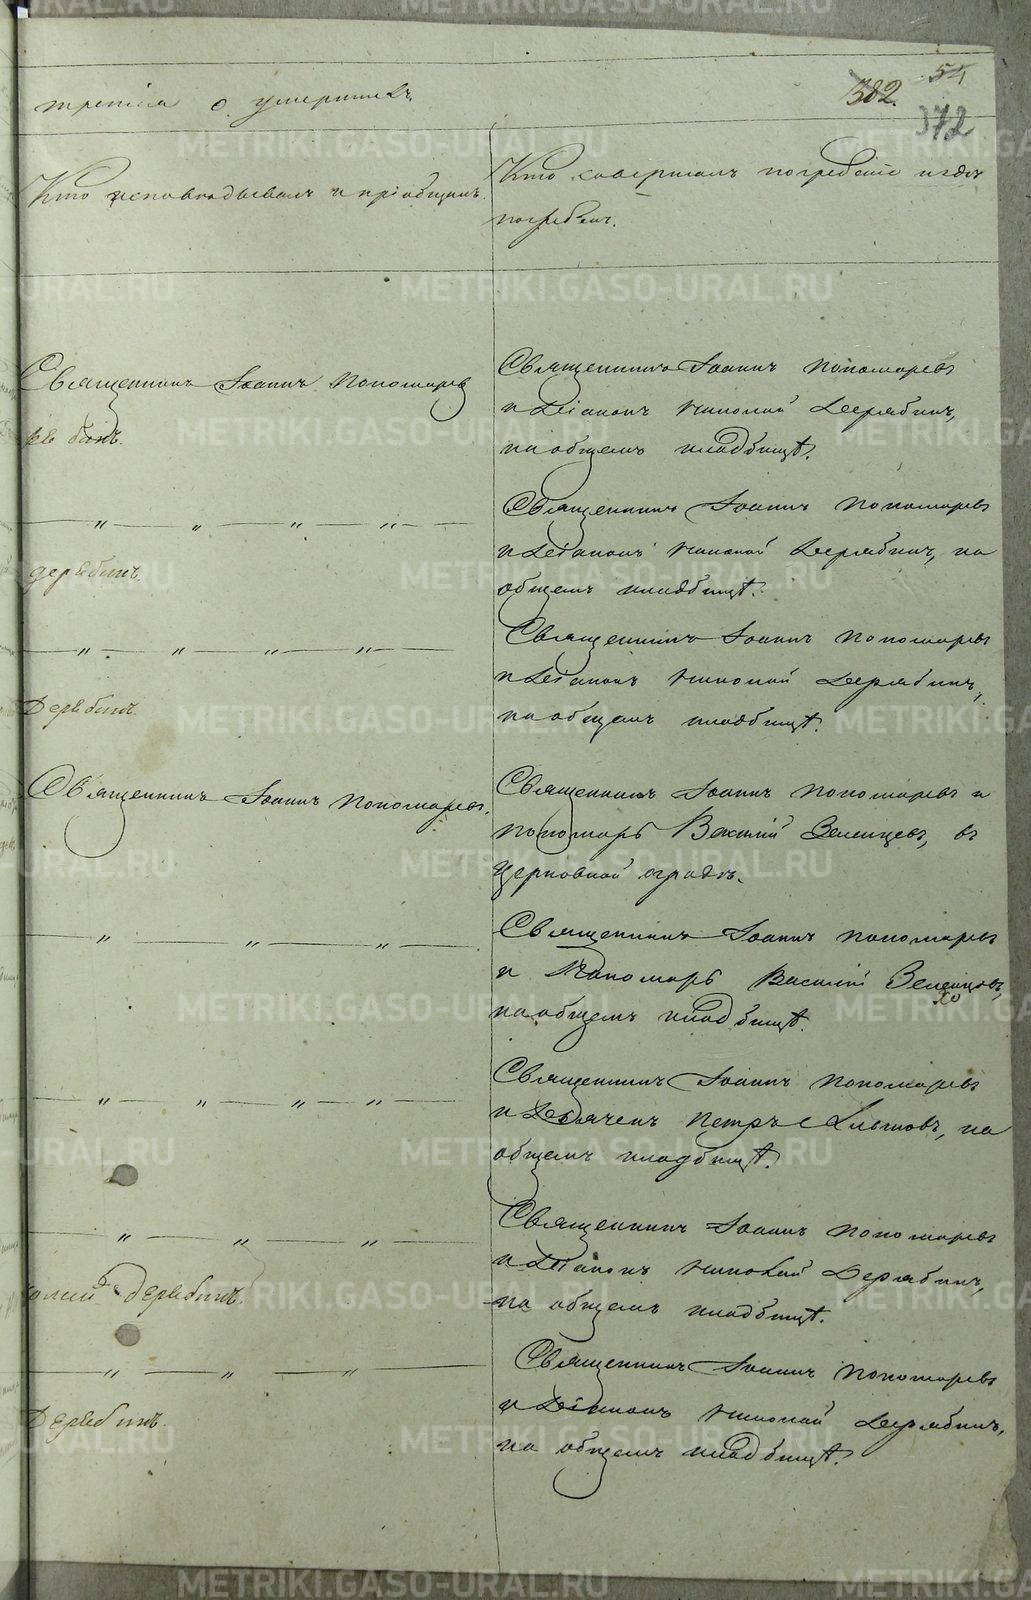 третія о умершихъ.
382. 54
372
Кто исповѣдывалъ и пріобщалъ.
Кто совершалъ погребеніе и гдѣ
погребенъ.
Священникъ Іоаннъ Пономаревъ
Священникъ Іоаннъ Пономаревъ
и Діаконъ Николай Дерябинъ,
на общемъ кладбищѣ.
— „ — „ — „ — „ —
дерябинъ.
Священникъ Іоаннъ Пономаревъ
и Діаконъ Николай Дерябинъ, на
общемъ кладбищѣ.
— „ — „ — „ — „ —
Дерябинъ.
Священникъ Іоаннъ Пономаревъ
и Діаконъ Николай Дерябинъ,
на общемъ кладбищѣ.
Священникъ Іоаннъ Пономаревъ.
Священникъ Іоаннъ Пономаревъ и
пономарь Василій Зеленцовъ, въ
Церковной оградѣ.
— „ — „ — „ —
Священникъ Іоаннъ Пономаревъ
и Пономарь Василій Зеленцовъ,
на общемъ кладбищѣ.
— „ — „ — „ — „ —
Священникъ Іоаннъ Пономаревъ
и Дьячекъ Петръ на
общемъ кладбищѣ.
— „ — „ — „ —
олай Дерябинъ.
Священникъ Іоаннъ Пономаревъ
и Діаконъ Николай Дерябинъ,
на общемъ кладбищѣ.
— „ — „ — „ —
Дерябинъ.
Священникъ Іоаннъ Пономаревъ
и Діаконъ Николай Дерябинъ,
на общемъ кладбищѣ.
METRIKI.GASO-URAL.RU